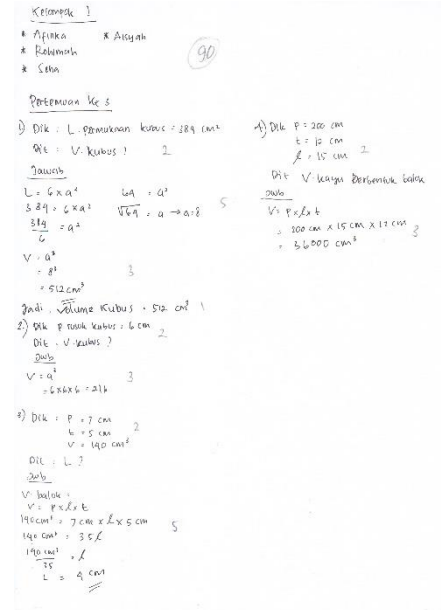 Kelompok 1
* Afinka * Aisyah
* Rohimah
* Seha
90
Pertemuan Ke 3
1) Dik : L. permukaan kubus = 384 cm²
Dit : V. kubus ? 2
Jawab
L = 6 x a² 64 = a²
384 = 6 x a² √64 = a → a = 8 5
384/6 = a²
V = a³
= 8³ 3
= 512 cm³
Jadi, volume kubus = 512 cm³ 1
2.) Dik p rusuk kubus = 6 cm
Dit : V. kubus ? 2
Jwb
V = a³ 3
= 6x6x6 = 216
3) Dik : P = 7 cm
t = 5 cm 2
V = 140 cm³
Dit : L ?
Jwb
V balok =
V = P x l x t
140 cm³ = 7 cm x l x 5 cm 5
140 cm³ = 35 l
140 cm³/35 = l
L = 4 cm
4) Dik P = 200 cm
t = 12 cm
l = 15 cm 2
Dit V. kayu berbentuk balok
Jwb
V = P x l x t
= 200 cm x 15 cm x 12 cm
= 36000 cm³ 3